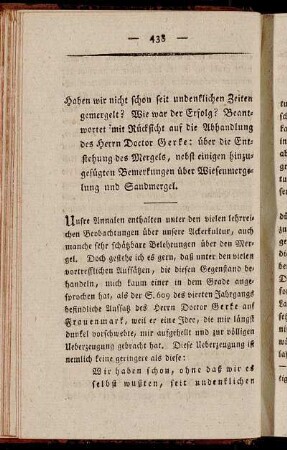 — 438 —
Haben wir nicht schon seit undenklichen Zeiten
gemergelt? Wie war der Erfolg? Beant-
wortet mit Rücksicht auf die Abhandlung
des Herrn Doctor Gerke: über die Ent-
stehung des Mergels, nebst einigen hinzu-
gefügten Bemerkungen über Wiesenmerge-
lung und Sandmergel.
Unsre Annalen enthalten unter den vielen lehrrei-
chen Beobachtungen über unsere Ackerkultur, auch
manche sehr schätzbare Belehrungen über den Mer-
gel. Doch gestehe ich es gern, daß unter den vielen
vortrefflichen Aufsätzen, die diesen Gegenstand be-
handeln, mich kaum einer in dem Grade ange-
sprochen hat, als der S. 609 des vierten Jahrgangs
befindliche Aufsatz des Herrn Doctor Gerke auf
Frauenmark, weil er eine Idee, die mir längst
dunkel vorschwebte, mir aufgehellt und zur völligen
Ueberzeugung gebracht hat. Diese Ueberzeugung ist
nemlich keine geringere als diese:
Wir haben schon, ohne daß wir es
selbst wußten, seit undenklichen